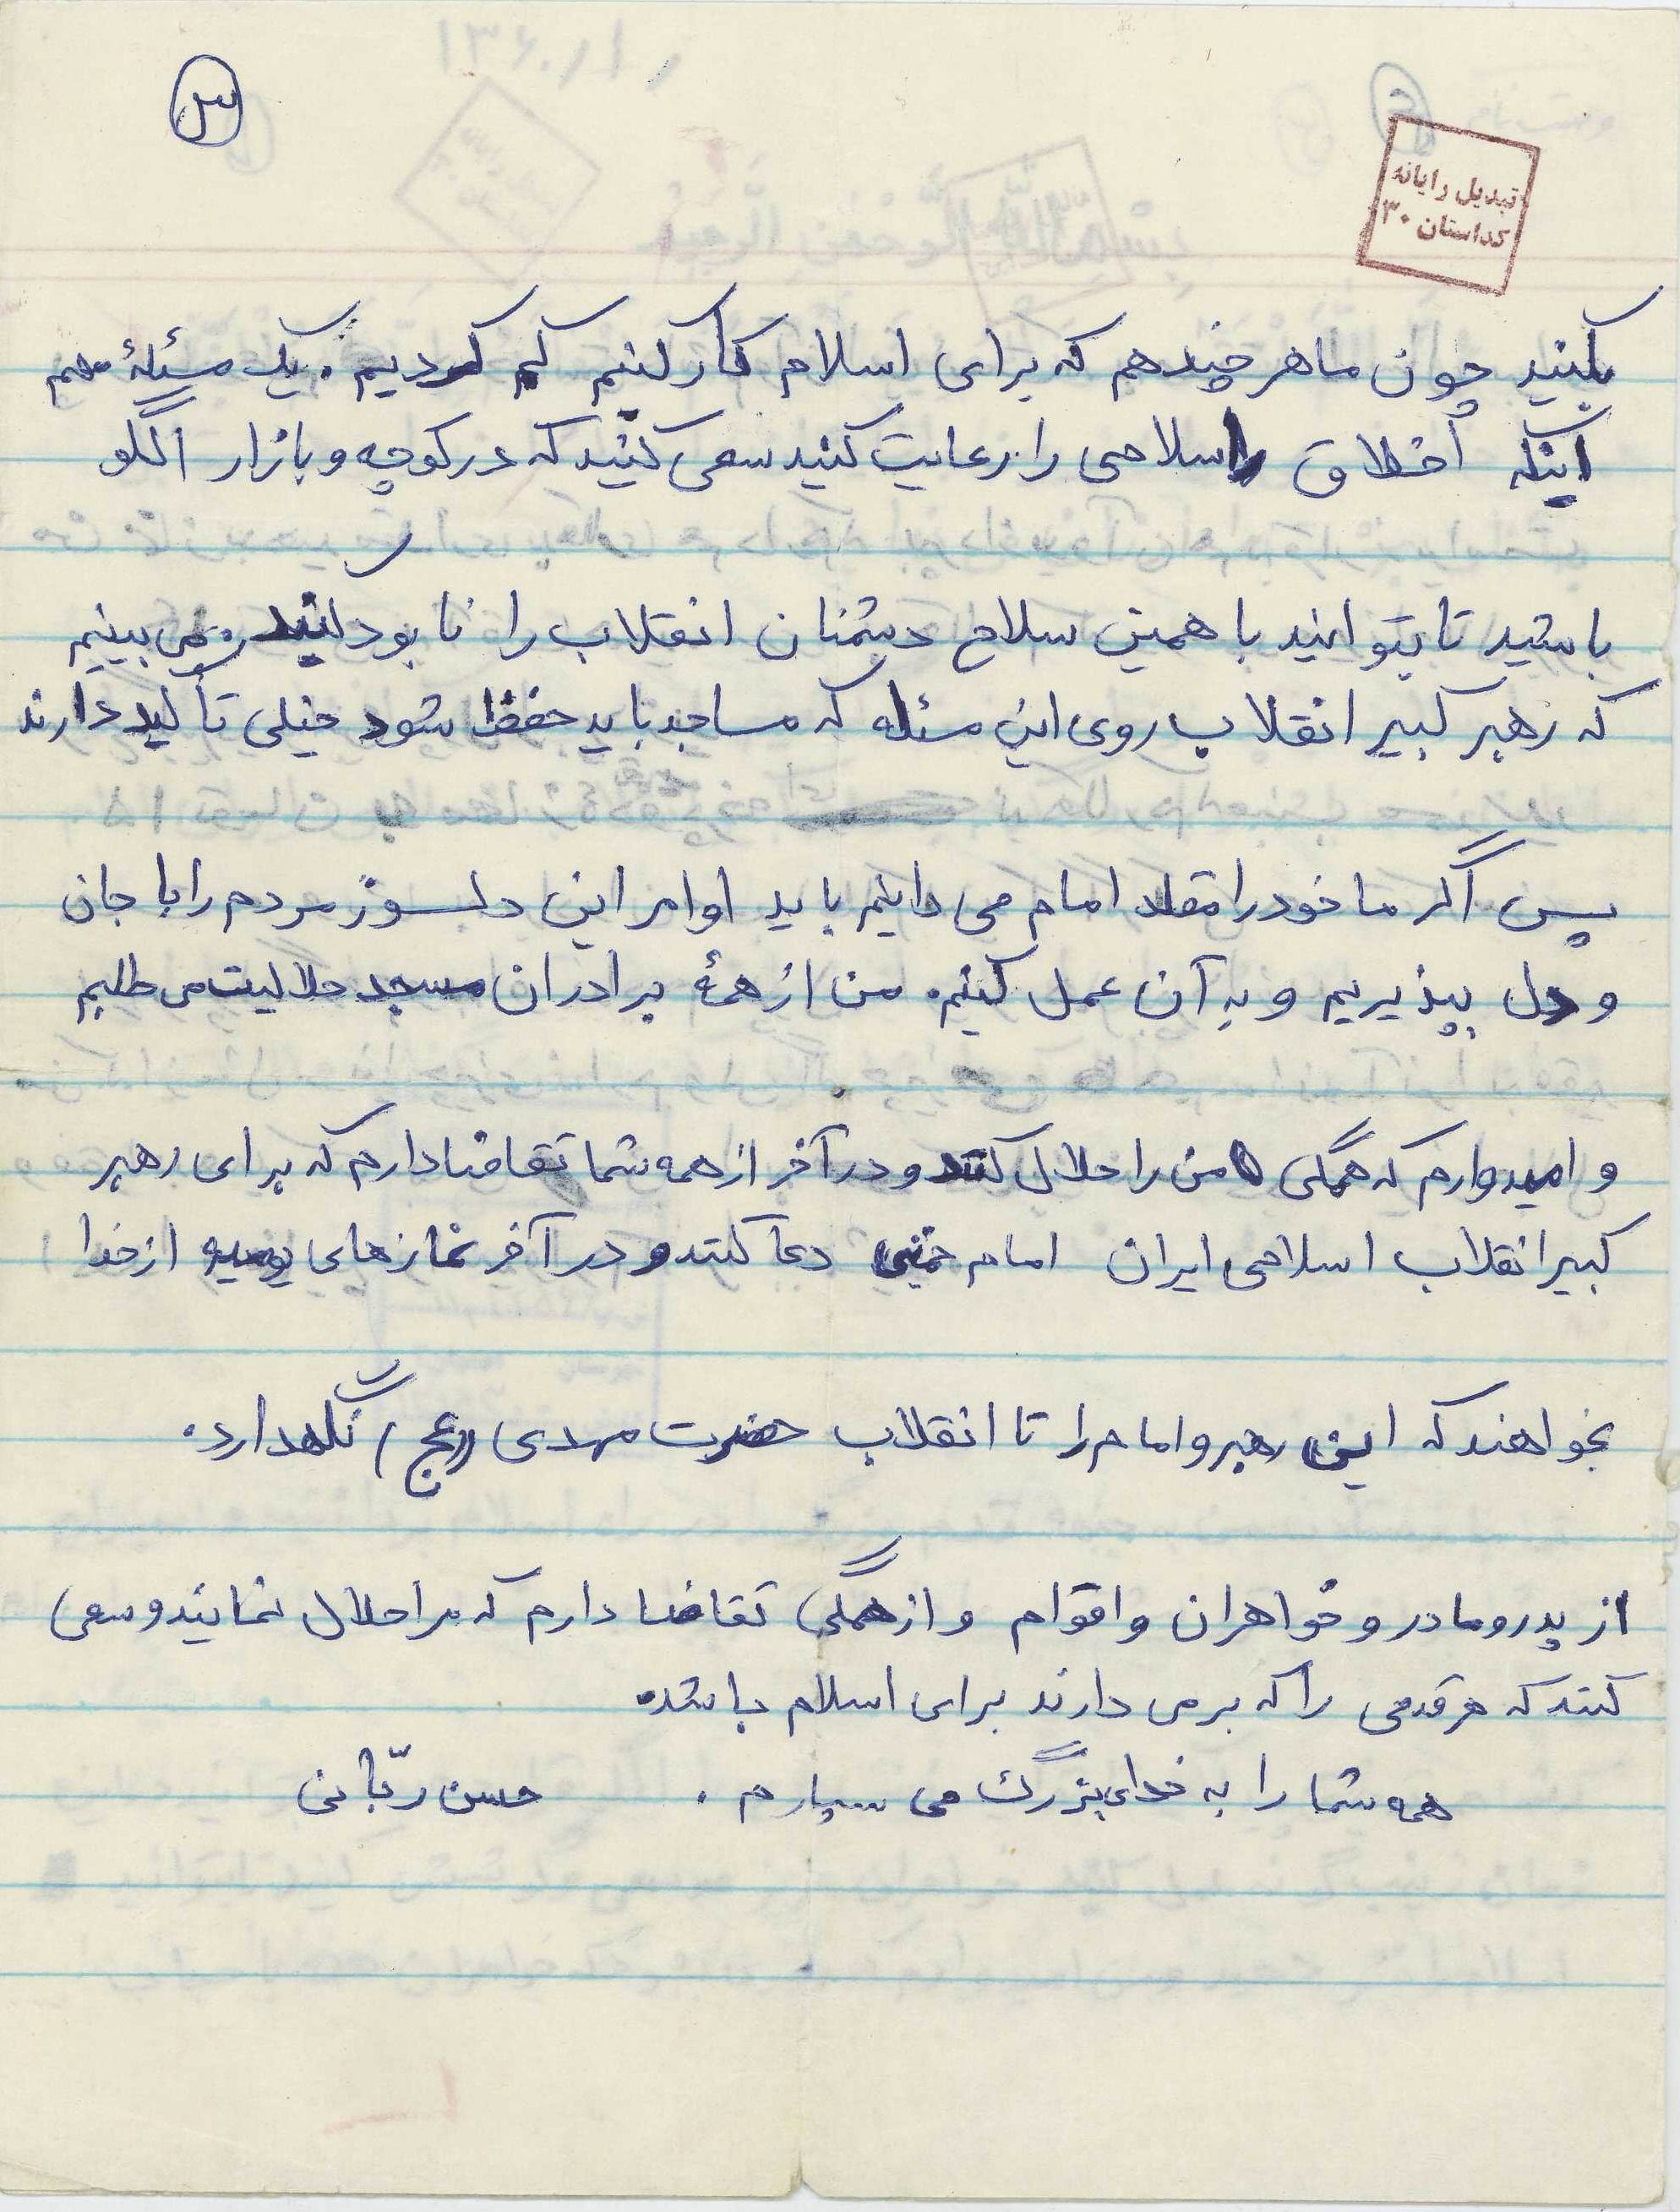 ۳
تبدیل رایانه
کداستان ۳۰
بکنید چون ما هر چند هم که برای اسلام کار کنیم کم کردیم. یک مسئلهٔ مهم
اینکه اخلاق اسلامی را رعایت کنید سعی کنید که در کوچه و بازار الگو
باشید تا بتوانید با همین سلاح دشمنان انقلاب را نابود کنید. می بینیم
که رهبر کبیر انقلاب روی این مسئله که مساجد باید حفظ شود خیلی تأکید دارند
پس اگر ما خود را مقلد امام می دانیم باید اوامر این دلسوز مردم را با جان
و دل بپذیریم و به آن عمل کنیم. من از همهٔ برادران مسجد حلالیت می طلبم
و امیدوارم که همگی من را حلال کنند و در آخر از همه شما تقاضا دارم که برای رهبر
کبیر انقلاب اسلامی ایران امام خمینی دعا کنند و در آخر نمازهای یومیه از خدا
بخواهند که این رهبر و امام را تا انقلاب حضرت مهدی (عج) نگهدارد.
از پدر و مادر و خواهران و اقوام و از همگی تقاضا دارم که مرا حلال نمایند و سعی
کنند که هر قدمی را که بر می دارند برای اسلام باشد.
همه شما را به خدای بزرگ می سپارم. حسن ربّانی